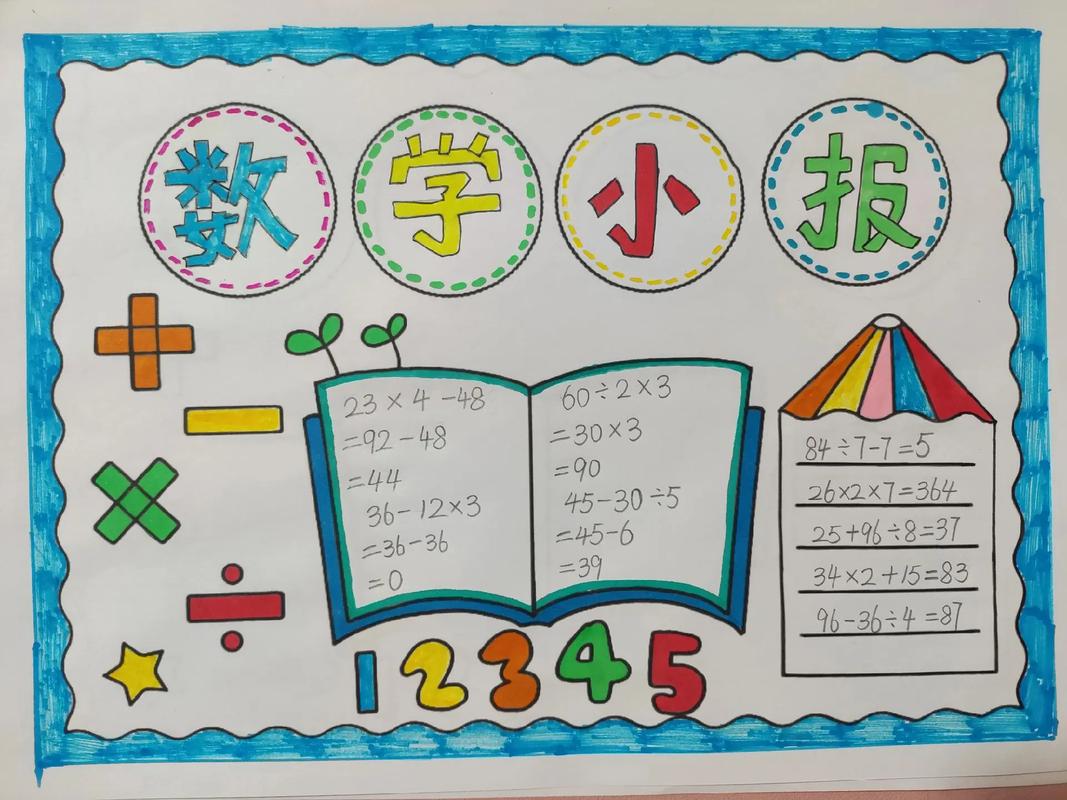 数学小报
23×4-48
=92-48
=44
36-12×3
=36-36
=0
60÷2×3
=30×3
=90
45-30÷5
=45-6
=39
84÷7-7=5
26×2×7=364
25+96÷8=37
34×2+15=83
96-36÷4=87
1 2 3 4 5